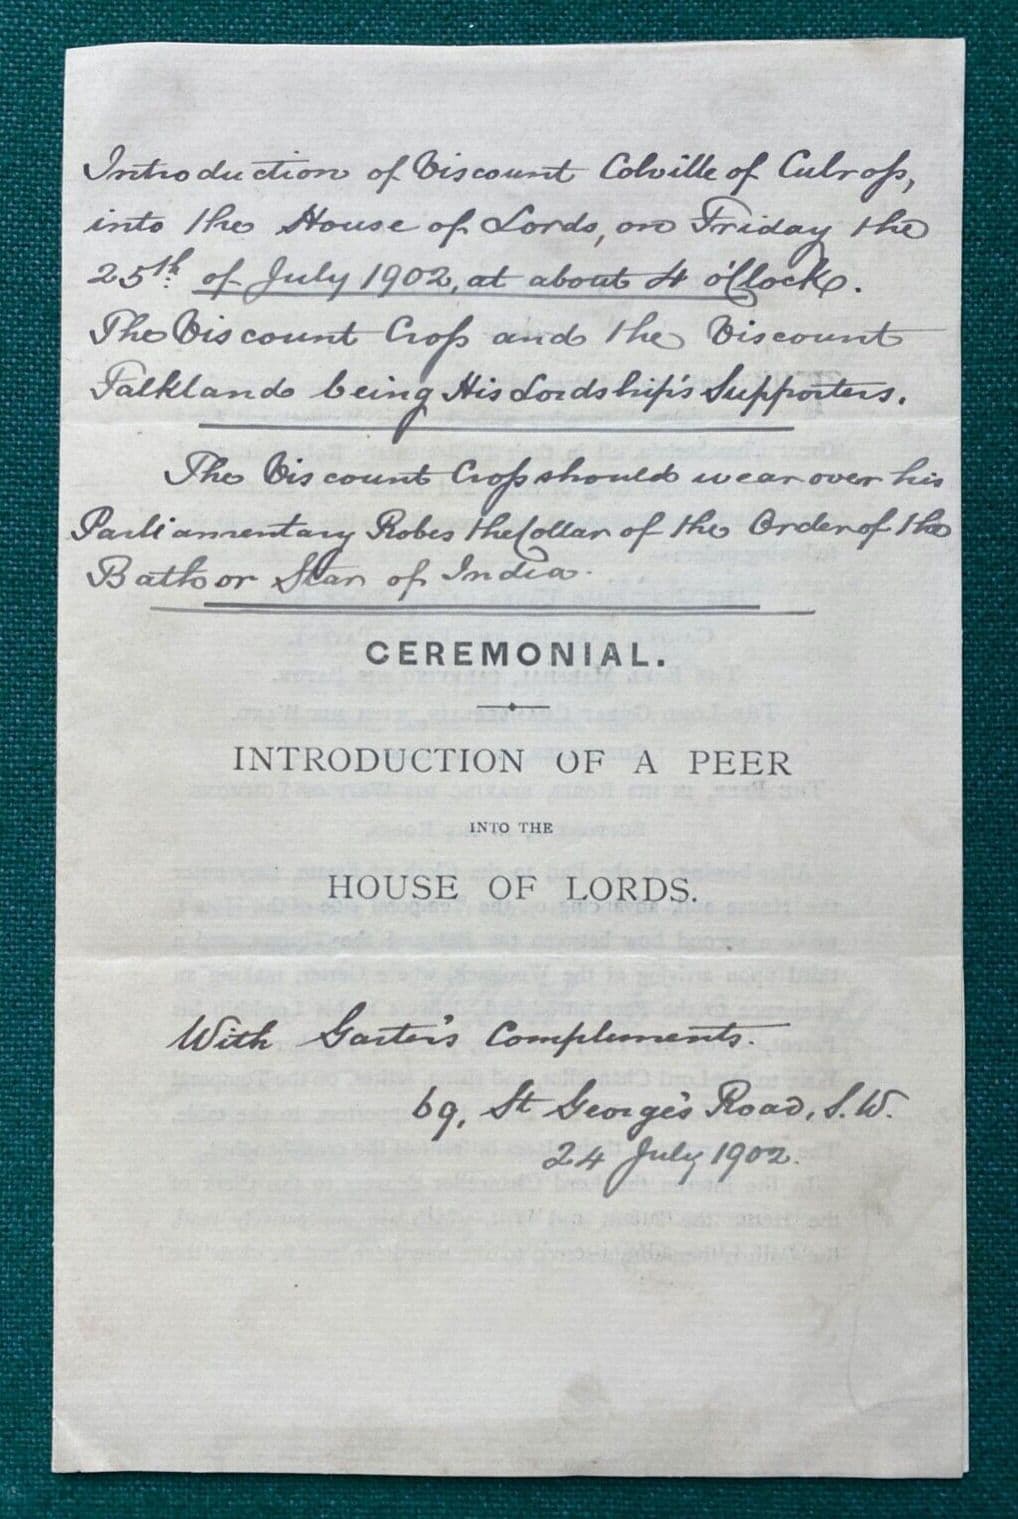 Introduction of Viscount Colville of Culross,
into the House of Lords, on Friday the
25th of July 1902, at about 4 o'Clock.
The Viscount Cross and the Viscount
Falkland being His Lordship's Supporters.
The Viscount Cross should wear over his
Parliamentary Robes the Collar of the Order of the
Bath or Star of India.
CEREMONIAL.
INTRODUCTION OF A PEER
INTO THE
HOUSE OF LORDS.
With Garter's Compliments.
69, St George's Road, S.W.
24 July 1902.